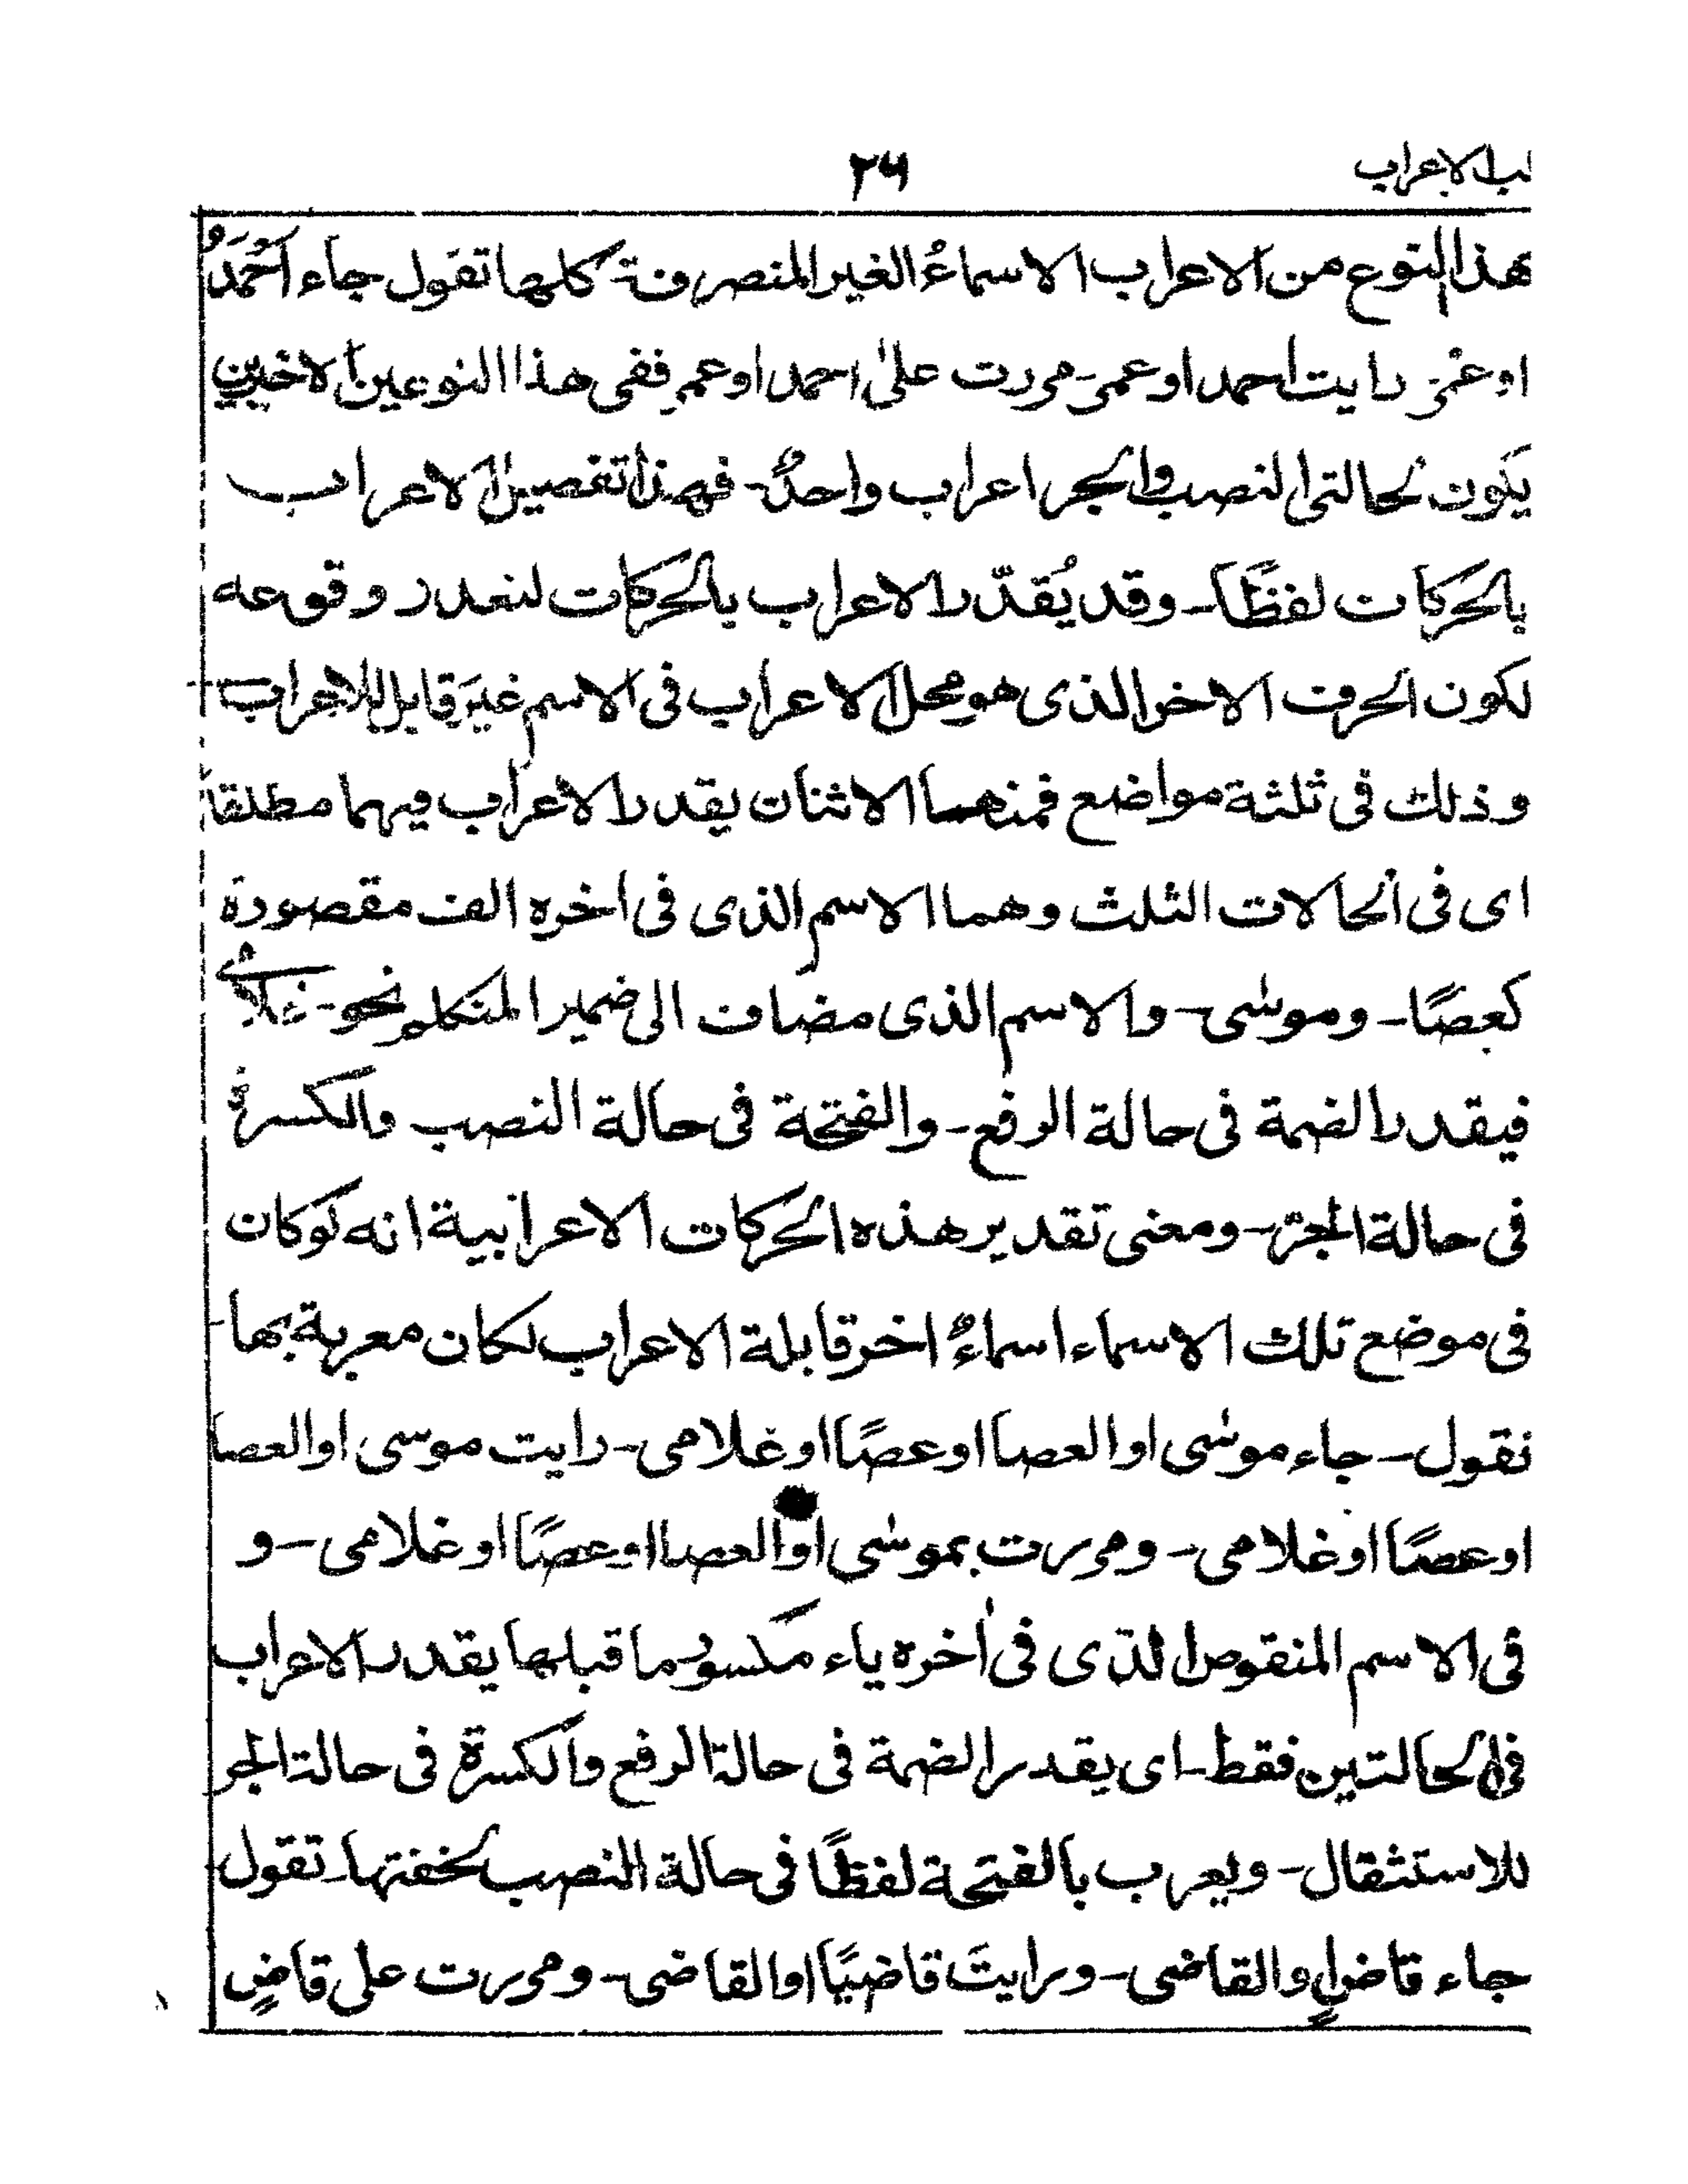 لب الاعراب
٢٦
هذا النوع من الاعراب الاسماءُ الغير المنصرفة كلها تقول جاء اَحْمَدُ
او عمر رايت احمد او عمر - مررت علىٰ احمد او عمر ففى هذا النوعين الاخيرين
يكون لحالتى النصب والجر اعراب واحدٌ - فهذا تفصيل الاعراب
بالحركات لفظًا - وقد يُقدّر الاعراب بالحركات لتعذر وقوعه
لكون الحرف الاخر الذى هو محل الاعراب فى الاسم غيرَ قابل للاعراب
وذلك فى ثلثة مواضع فمنهما الاثنان يقدر الاعراب فيهما مطلقاً
اى فى الحالات الثلث وهما الاسم الذى فى اخره الف مقصورة
كعصًا - وموسٰى - والاسم الذى مضاف الى ضمير المتكلم نحو - غلامى
فيقدر الضمة فى حالة الرفع - والفتحة فى حالة النصب والكسرة
فى حالة الجرّ - ومعنى تقدير هذه الحركات الاعرابية انه لوكان
فى موضع تلك الاسماء اسماءٌ اخر قابلة الاعراب لكان معربة بها
نقول - جاء موسٰى او العصا او عصًا او غلامى - رايت موسى او العصا
او عصًا او غلامى - ومررت بموسٰى او العصا او عصًا او غلامى - و
فى الاسم المنقوص الذى فى اٰخره ياء مكسور ما قبلها يقدر الاعراب
فى الحالتين فقط - اى يقدر الضمة فى حالة الرفع والكسرة فى حالة الجر
للاستثقال - ويعرب بالفتحة لفظًا فى حالة النصب لخفتها - تقول
جاء قاضٍ او القاضى - ورايتَ قاضيًا او القاضى - ومررت على قاضٍ